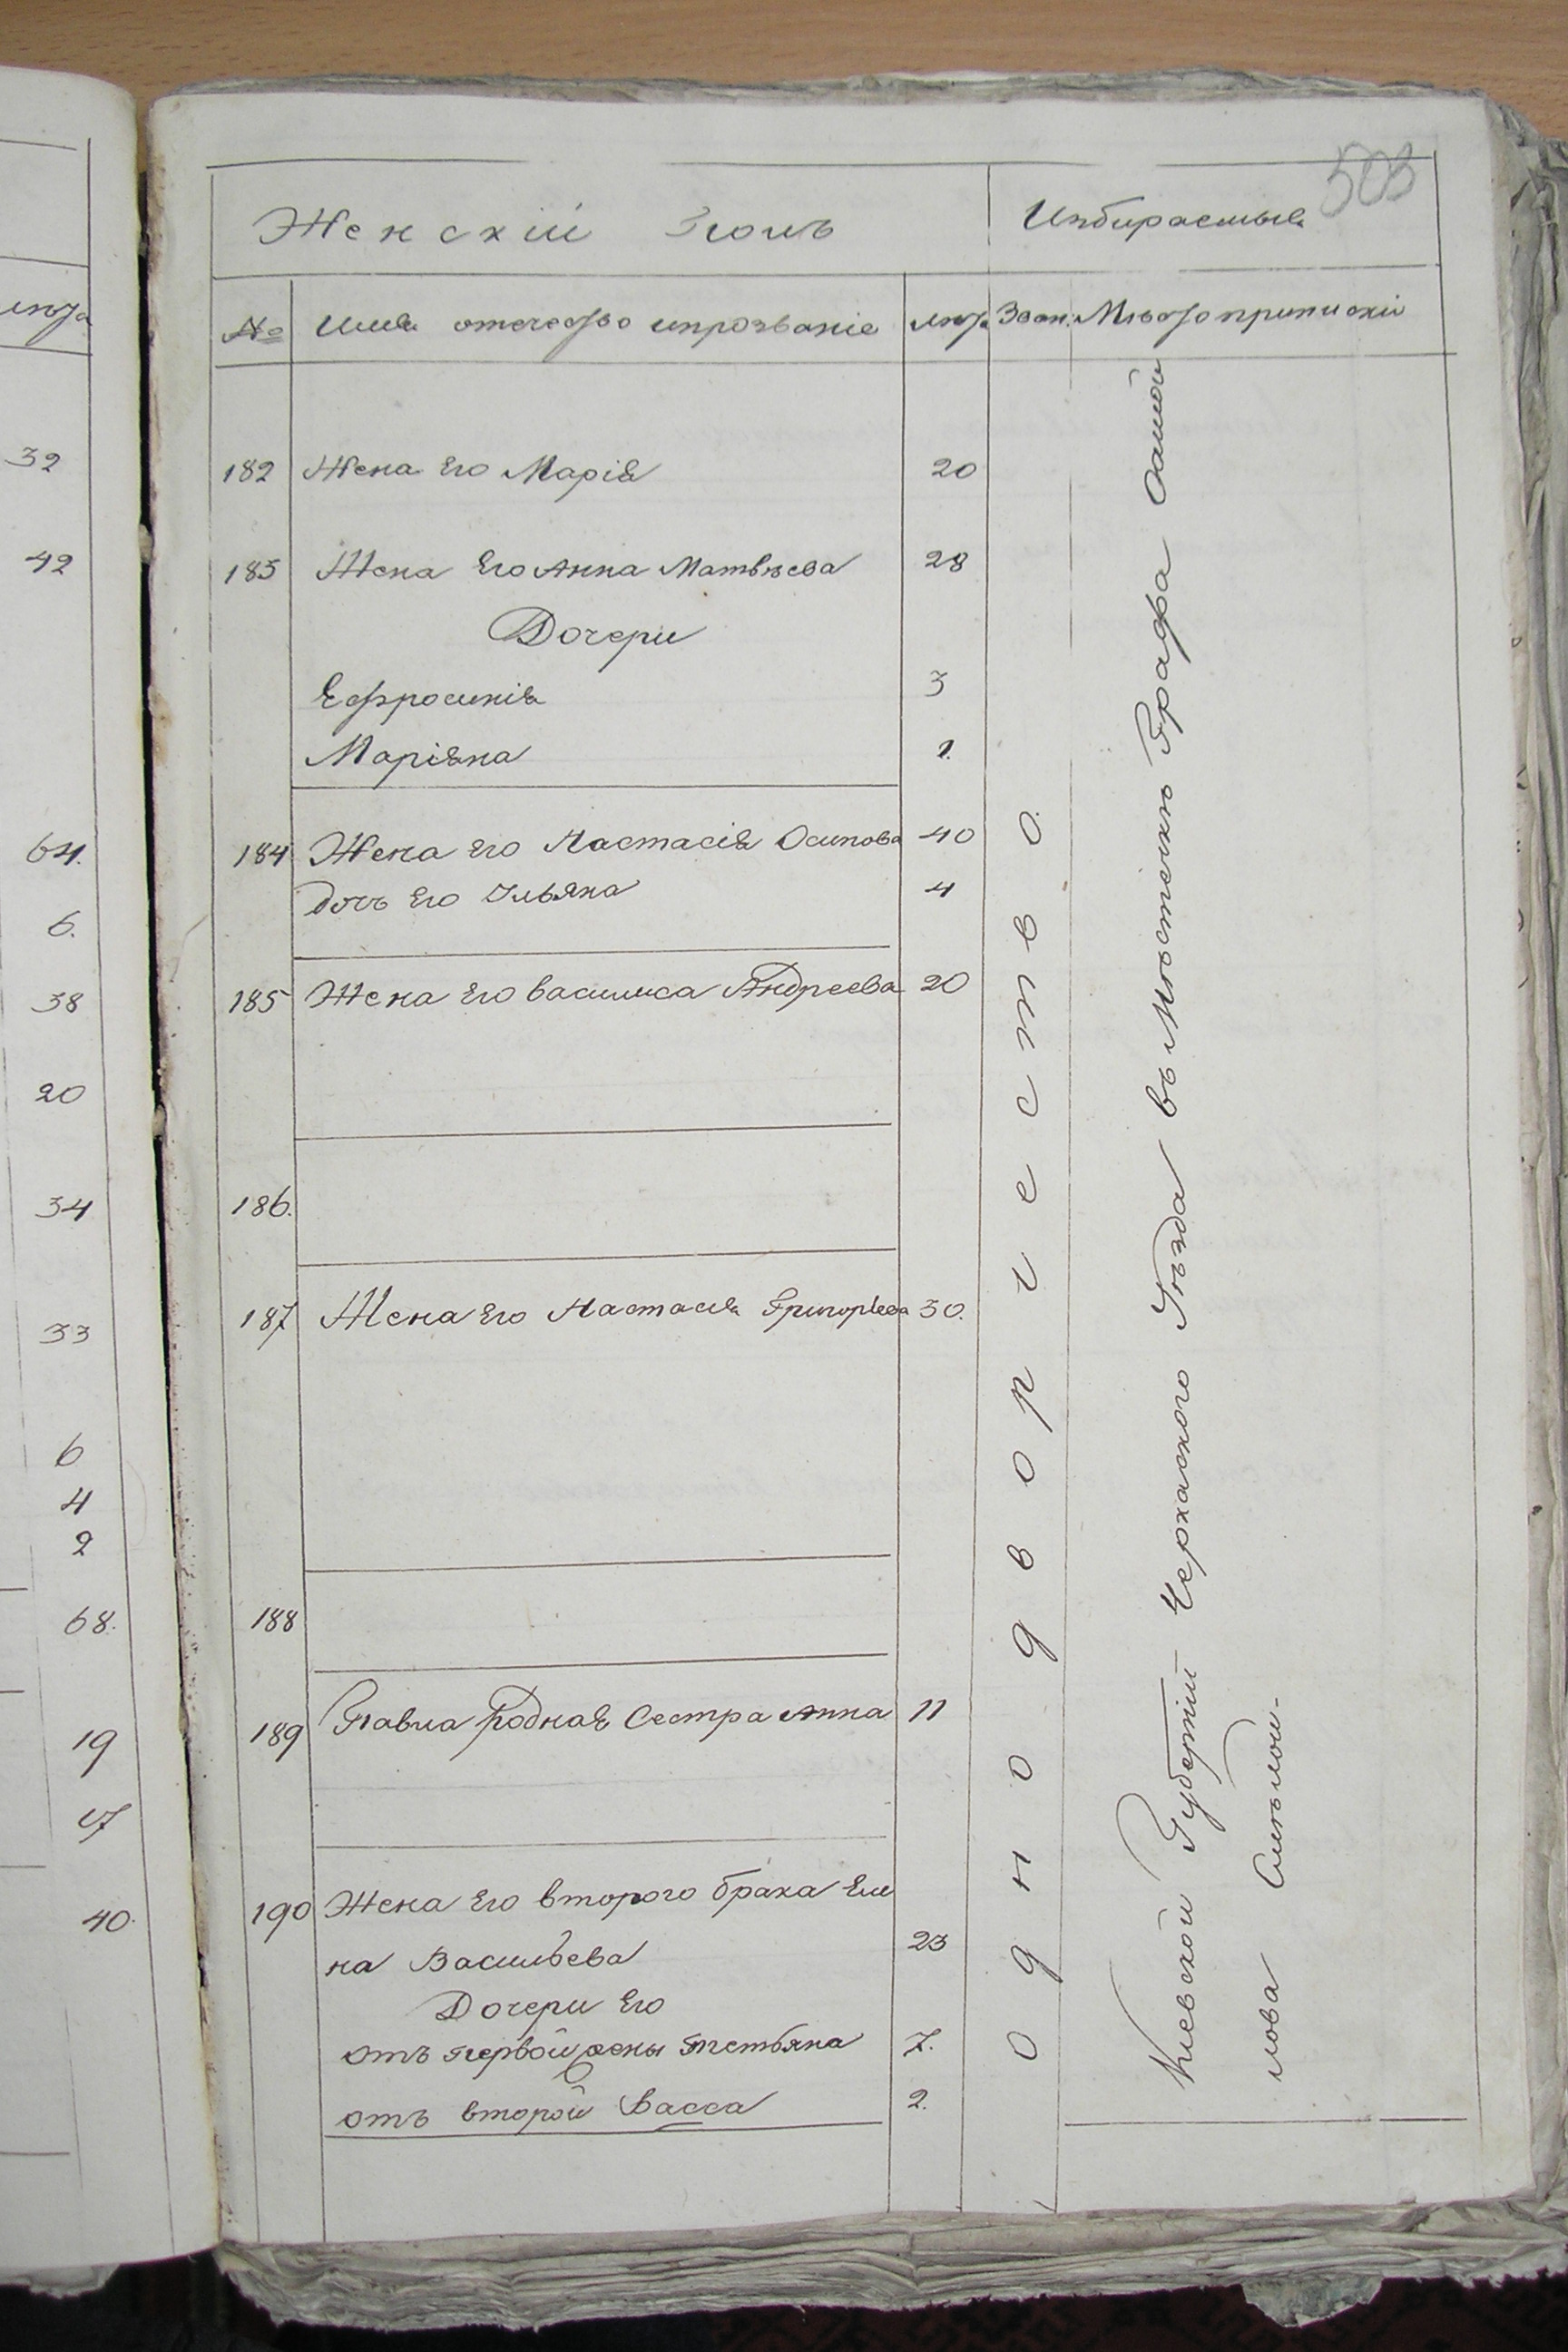 лѣта
32
42
64.
6.
38
20
34
33
6
4
2
68.
19
17
40.
503
Женскій Полъ
Избираемыя
№ Имя отечество ипрозваніе лѣта Зван: Мѣсто приписки
182 Жена Его Марія 20
183 Жена Его Анна Матвѣева 28
Дочери
Ефросинія 3
Маріяна 1.
184 Жена Его Настасія Осипова 40
дочь Его Ульяна 4
185 Жена Его Василиса Андреева 20
186.
187 Жена Его Настасія Григорьева 30.
188
189 Павла родная Сестра Анна 11
190 Жена Его втораго брака Еле
на Васильева 23
Дочери Его
отъ первой жены Тетьяна 7.
отъ второй Васса 2.
однодворчество.
Кіевской Губерніи Черкаского Уѣзда въ Мѣстечкѣ Графа Самой
лова Смѣлой.